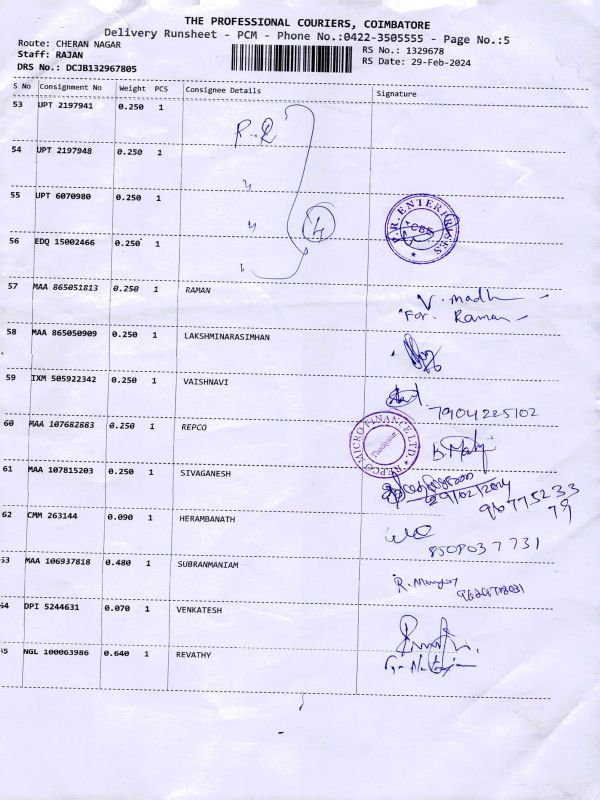 THE PROFESSIONAL COURIERS, COIMBATORE
Delivery Runsheet - PCM - Phone No.:0422-3505555 - Page No.:5
Route: CHERAN NAGAR
RS No.: 1329678
Staff: RAJAN
RS Date: 29-Feb-2024
DRS No.: DCJB132967805
S No Consignment No Weight PCS Consignee Details Signature
53 UPT 2197941 0.250 1 P.R
54 UPT 2197948 0.250 1
55 UPT 6070980 0.250 1
P.R. ENTERPRISES
CBE
56 EDQ 15002466 0.250 1 4
57 MAA 865051813 0.250 1 RAMAN V. madh
For. Raman
58 MAA 865050909 0.250 1 LAKSHMINARASIMHAN
59 IXM 505922342 0.250 1 VAISHNAVI
7904225102
60 MAA 107682883 0.250 1 REPCO
REPCO MICRO FINANCE LTD.
61 MAA 107815203 0.250 1 SIVAGANESH
29/02/2024
9677523379
62 CMM 263144 0.090 1 HERAMBANATH
8508037731
53 MAA 106937818 0.480 1 SUBRANMANIAM
R.
54 DPI 5244631 0.070 1 VENKATESH
55 NGL 100063986 0.640 1 REVATHY